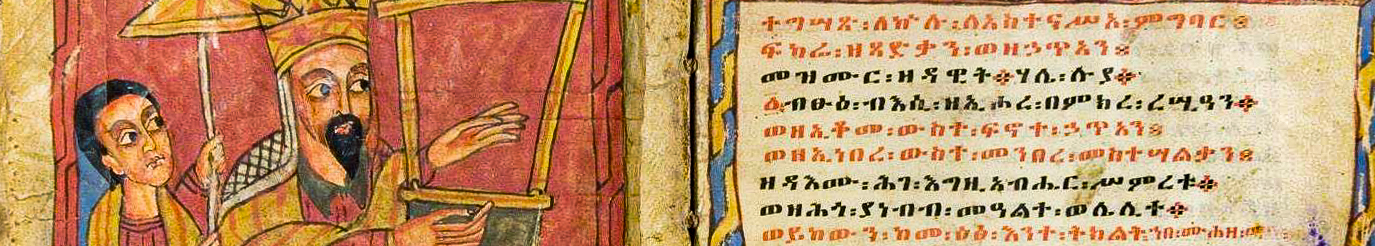 ተግሣጽ፡ለኵሉ፡ለአስተናሥአ፡ምግባር፨
ፍካሬ፡ዘጻድቃን፡ወዘኃጥአን፨
መዝሙር፡ዘዳዊት፨ሃሌ፡ሉያ፨
ብፁዕ፡ብእሲ፡ዘኢሐረ፡በምክረ፡ረሢዓን፨
ወዘኢቆመ፡ውስተ፡ፍኖተ፡ኃጥአን፨
ወዘኢነበረ፡ውስተ፡መንበረ፡መስተሣልቃን፨
ዘዳእሙ፡ሕገ፡እግዚአብሔር፡ሥምረቱ፨
ወዘሕጎ፡ያነብብ፡መዓልተ፡ወሌሊተ፨
ወይከውን፡ከመ፡ዕፅ፡እንተ፡ትክልት፡ኀበ፡ሙሐዘ፡